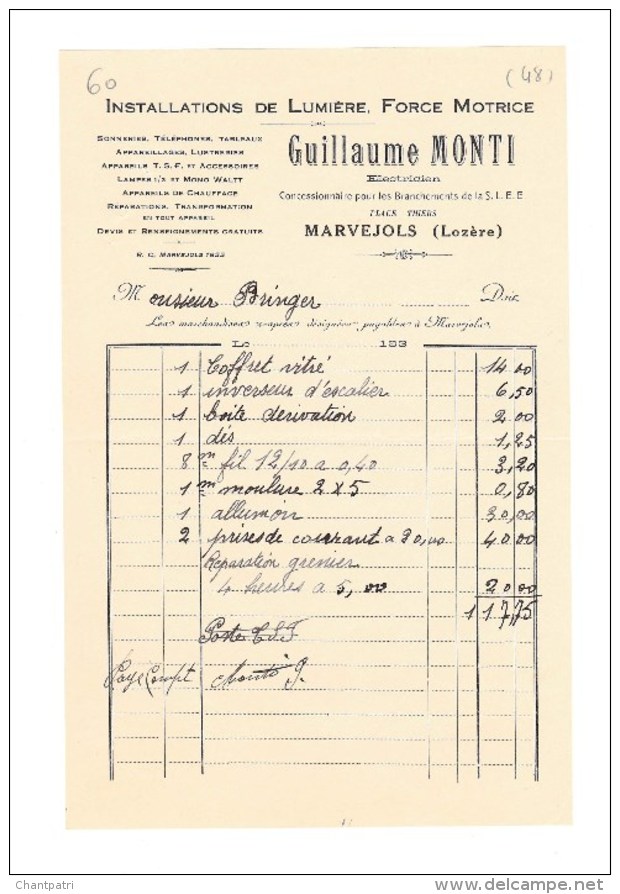 60
(48)
INSTALLATIONS DE LUMIÈRE, FORCE MOTRICE
SONNERIES, TÉLÉPHONES, TABLEAUX
APPAREILLAGES, LUSTRERIES
APPAREILS T. S. F. ET ACCESSOIRES
LAMPES 1/2 ET MONO WALTT
APPAREILS DE CHAUFFAGE
RÉPARATIONS, TRANSFORMATION
EN TOUT APPAREIL
DEVIS ET RENSEIGNEMENTS GRATUITS
R. C. MARVEJOLS 1633
Guillaume MONTI
Electricien
Concessionnaire pour les Branchements de la S. L. E. E
PLACE THIERS
MARVEJOLS (Lozère)
Monsieur Bringer Doit
Les marchandises ci-après désignées payables à Marvejols.
Le 193
1 Coffret vitré 14 00
1 inverseur d'escalier 6,50
1 boite derivation 2 00
1 dés 1,25
8 m fil 12/10 a 0,40 3,20
1 m moulure 2 x 5 0,80
1 allumoir 30,00
2 prises de courrant a 20,00 40 00
Reparation grenier
4 heures a 5,00 20 00
117,75
Poste T.S.F
Payé Compt Monti G.
Chantpatri
www.delcampe.net